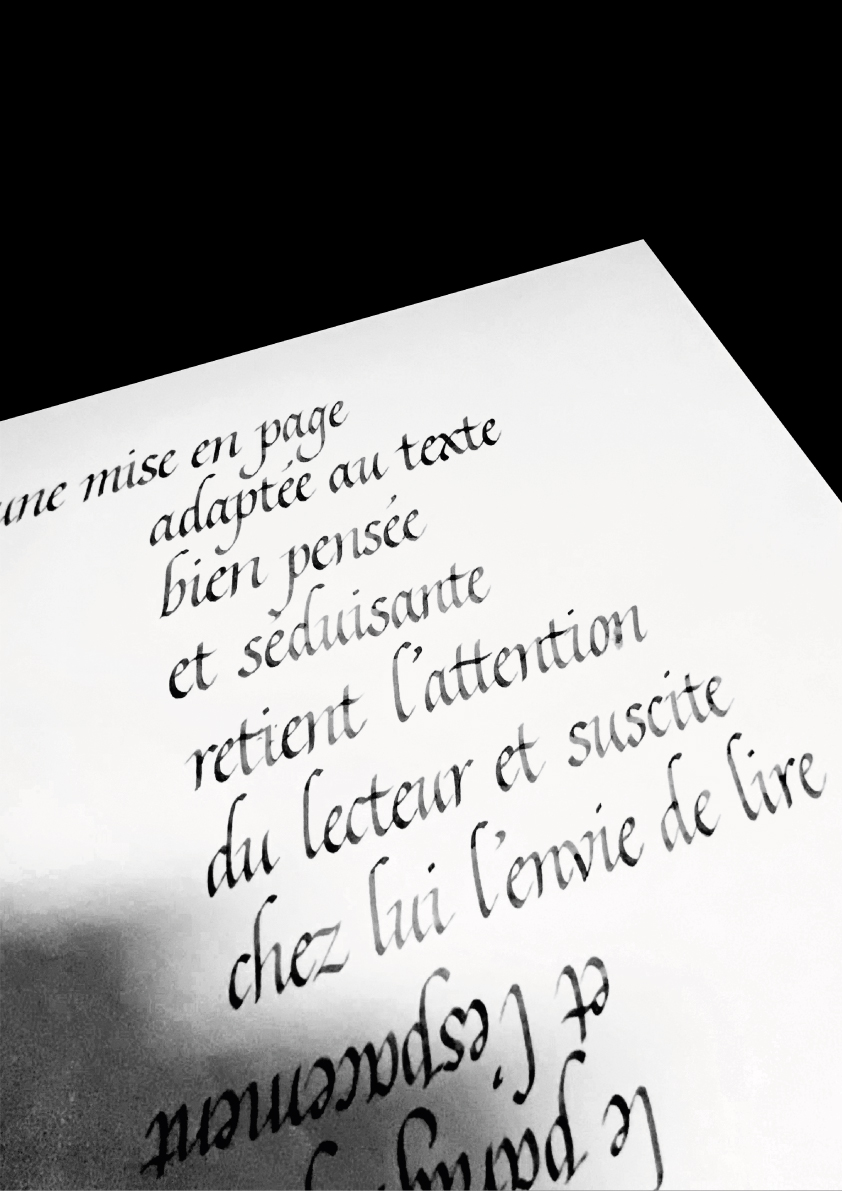 une mise en page
adaptée au texte
bien pensée
et séduisante
retient l'attention
du lecteur et suscite
chez lui l'envie de lire
et l'espacement
le